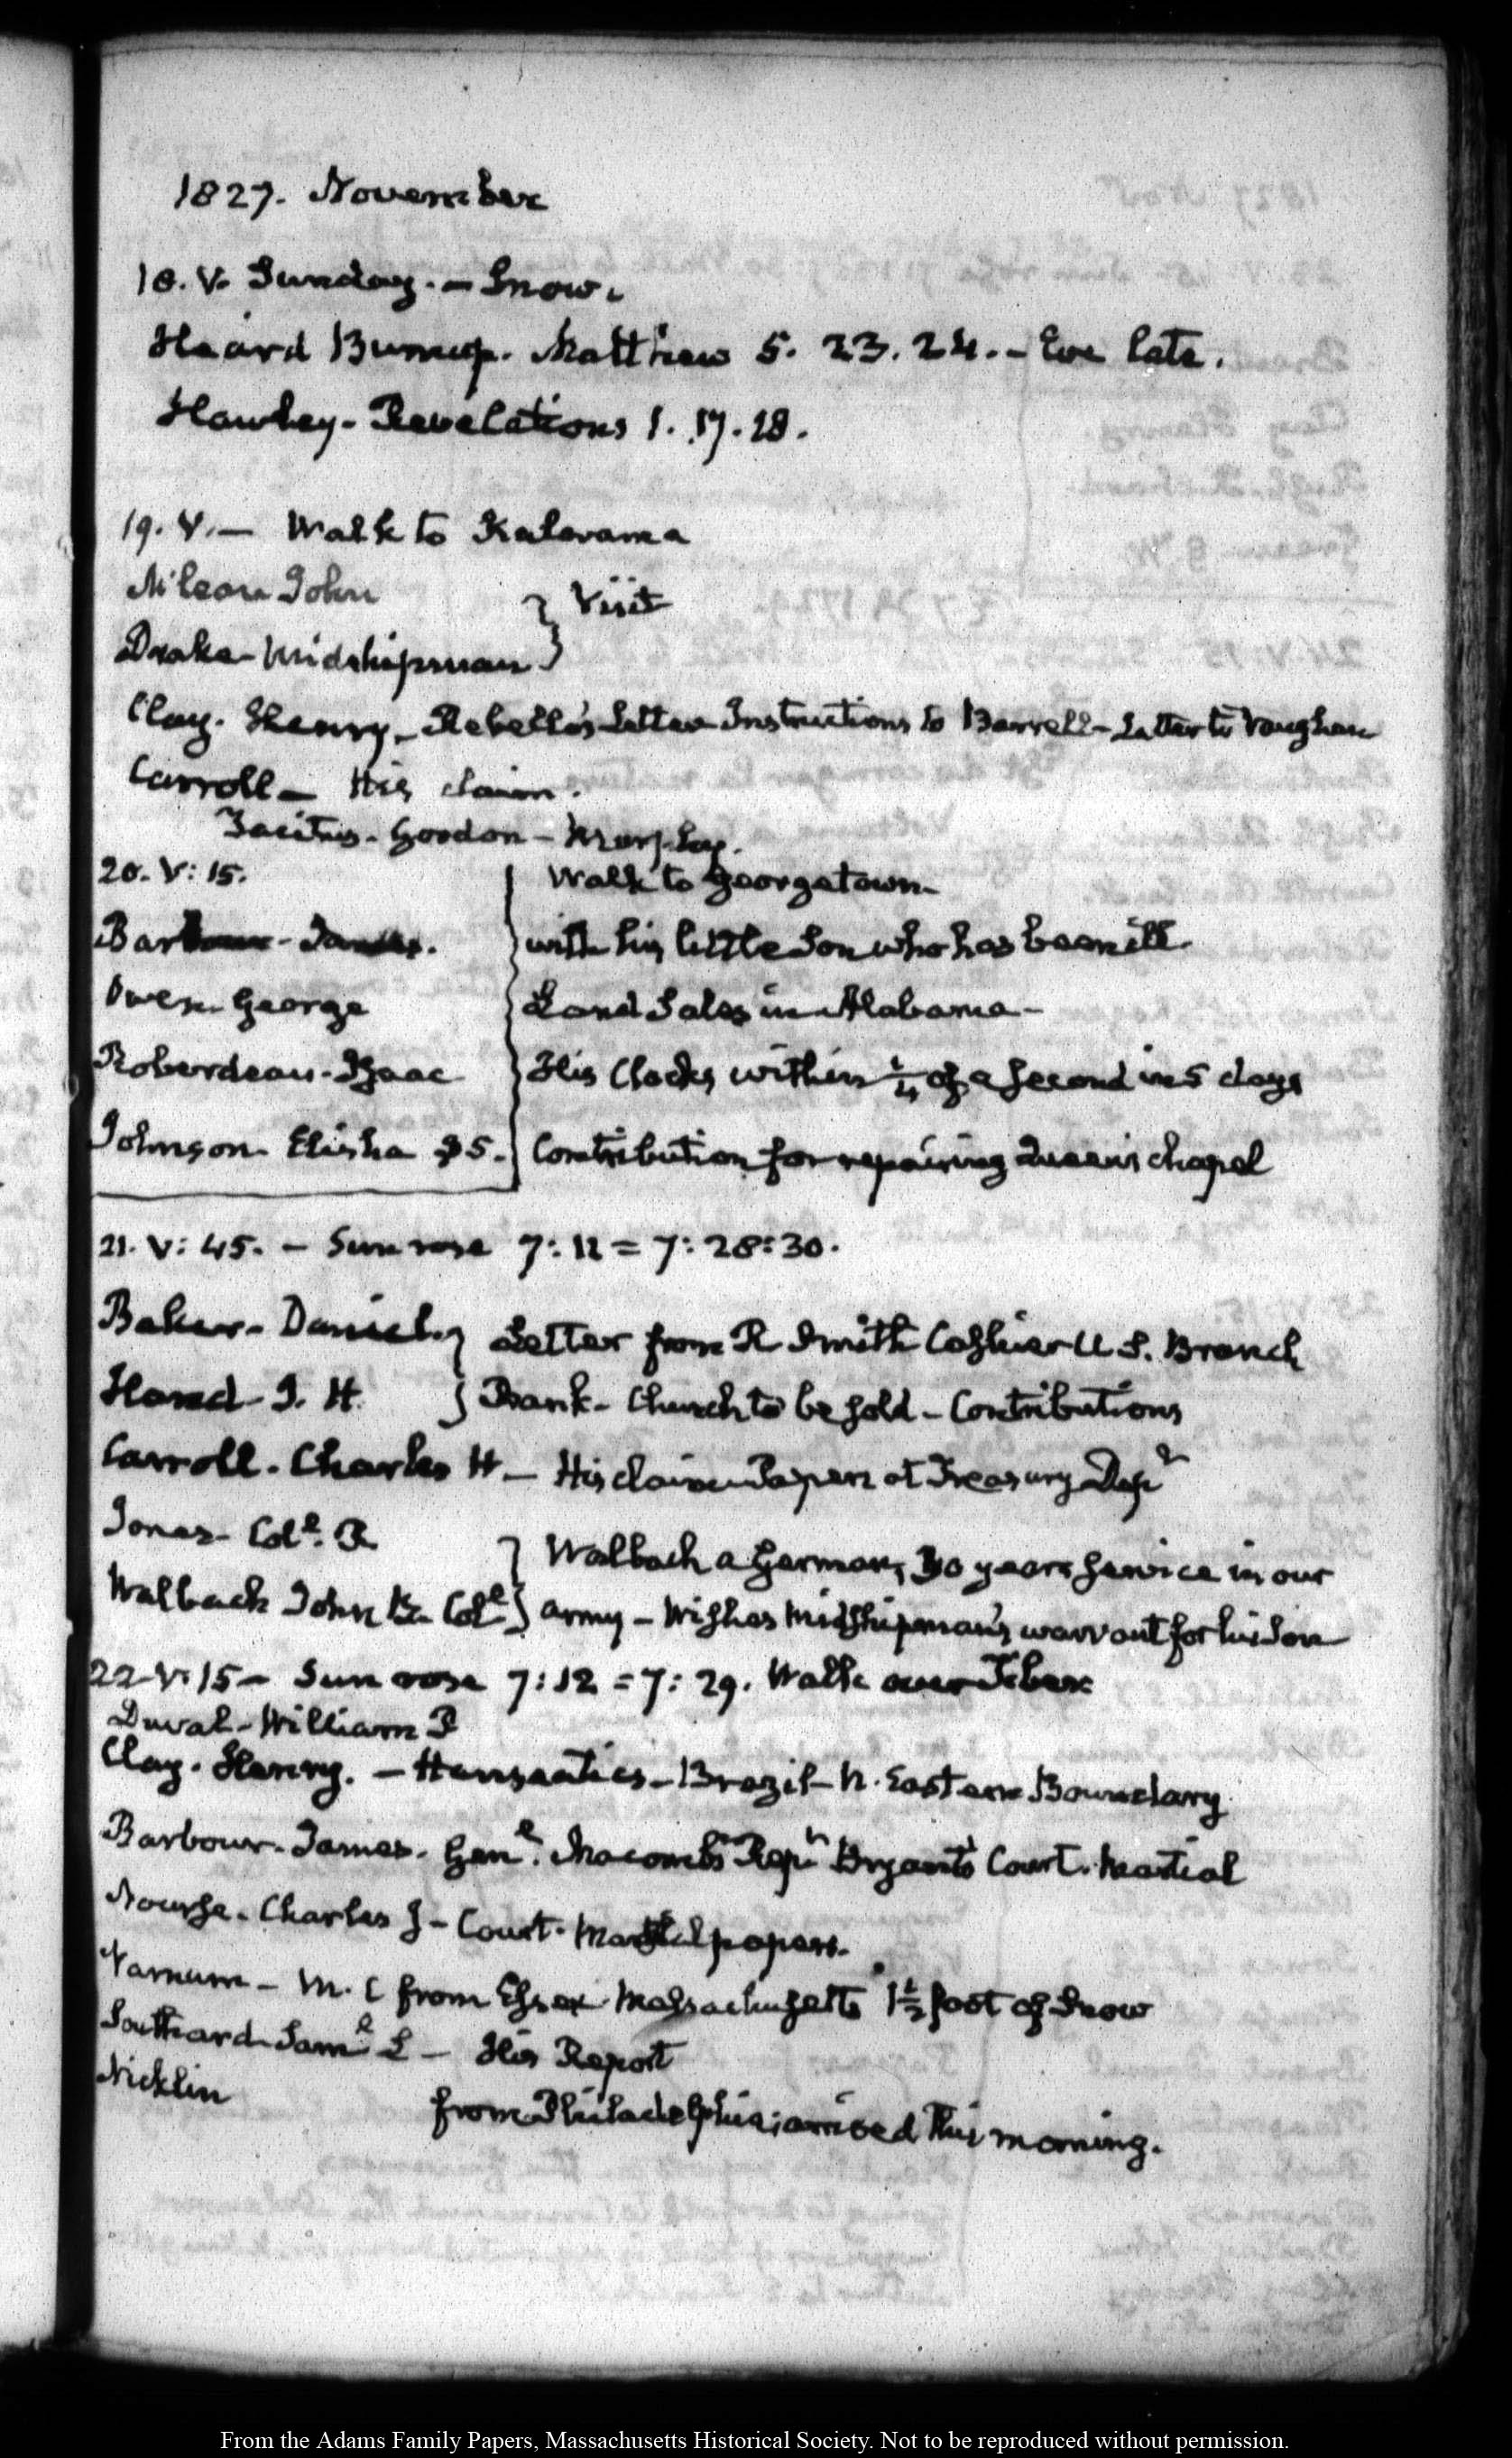 1827. November
18. V. Sunday. — Snow.
Heard Matthew 5. 23. 24. — Eve late.
Hawley. Revelations 1. 17. 18.
19. V. — Walk to Kalorama
McLean John } Visit
Drake — Midshipman }
Clay. Henry — Rebello's Letter Instructions to Barrell — Letter to Vaughan
Carroll — His claim.
Tacitus — Gordon — Murphy.
20. V: 15. Walk to Georgetown —
Barbour — James. with his little Son who has been ill.
Owen George Land Sales in Alabama —
Roberdeau. Isaac His Clocks within 1/4 of a Second in 5 days
Johnson. Elisha $5. Contribution for repairing Queen's chapel
21. V: 45. — Sun rose 7:12 = 7: 28: 30.
Baker — Daniel. } Letter from R Smith Cashier U. S. Branch
Hand — J. H. } Bank — Church to be sold — Contributions
Carroll. Charles H — His claim Papers at Treasury Dept
Jones — Coll. R } Walbach a German, 30 years service in our
Walbach John B. Coll } army — Wishes Midshipman's warrant for his Son
22. V: 15 — Sun rose 7:12 = 7: 29. Walk over Tiber
Duval — William P
Clay. Henry. — Hanseatics — Brazil — N. Eastern Boundary
Barbour. James. Genl. Macomb's Bryant's Court. Martial
Nourse. Charles J — Court. Martial papers.
Varnum — M. C from Essex Massachusetts 1 1/2 foot of Snow
Southard Saml L — His Report
Nicklin
from Philadelphia; arrived this morning.
From the Adams Family Papers, Massachusetts Historical Society. Not to be reproduced without permission.